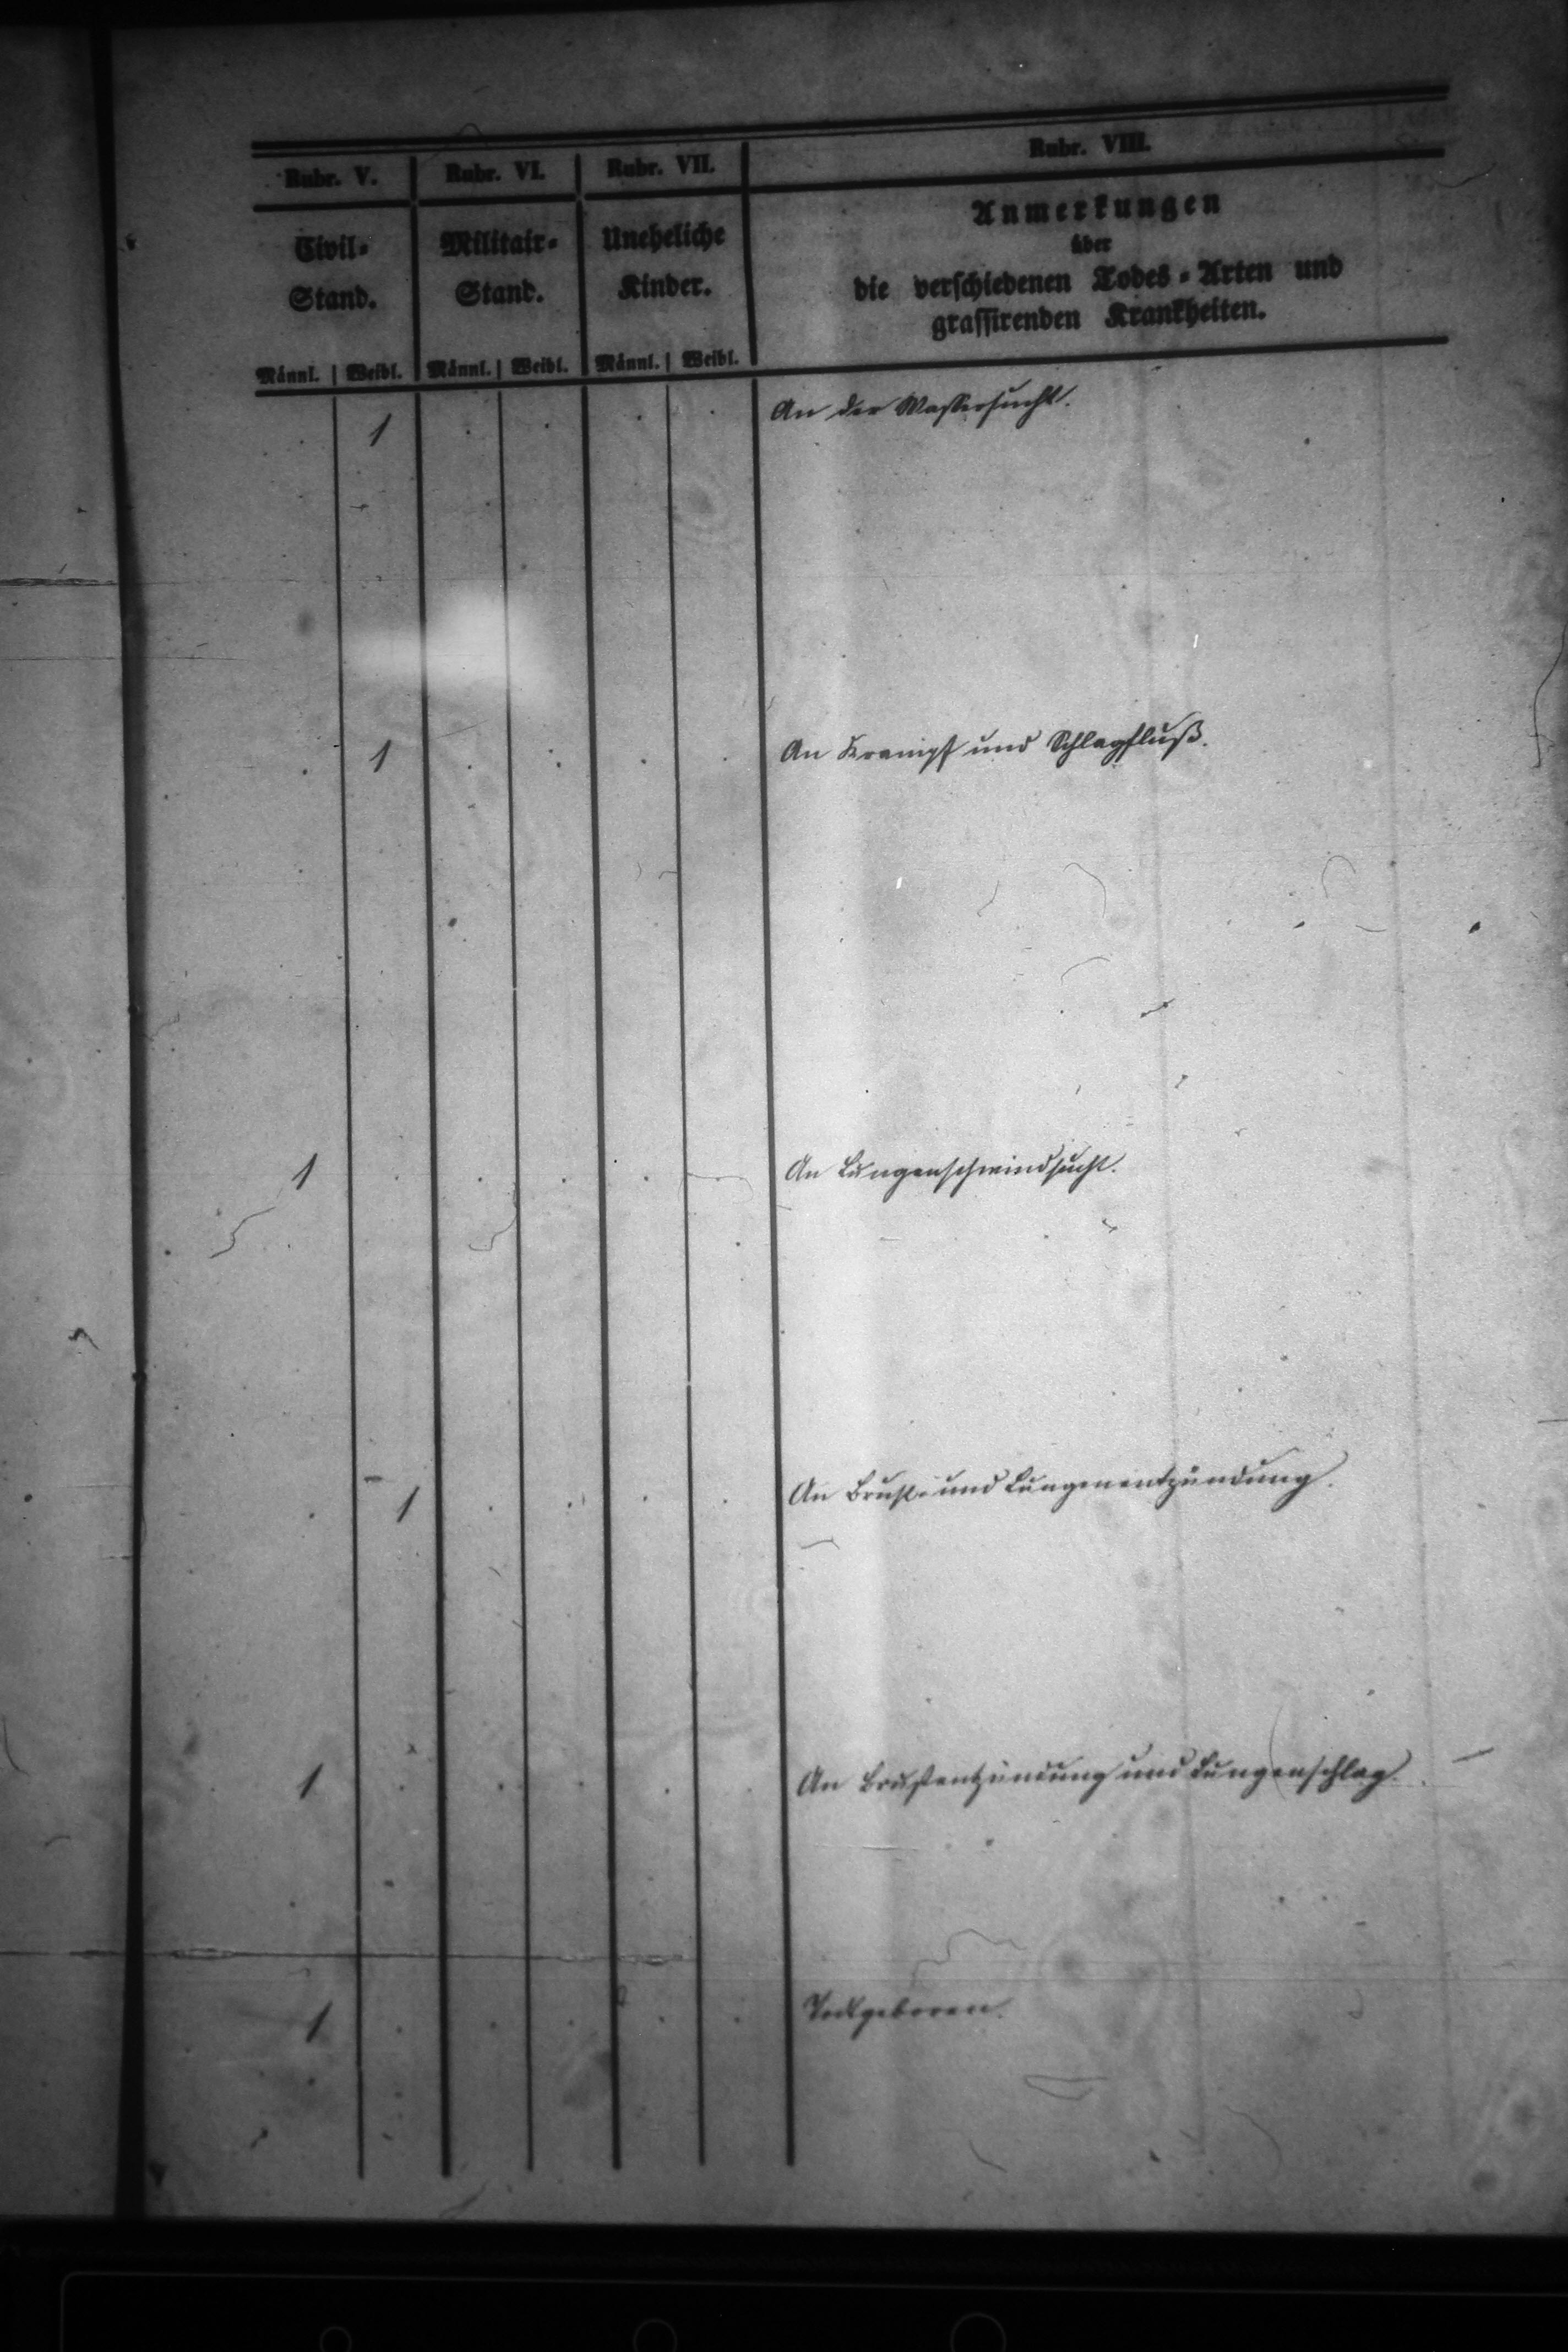 Rubr. V. Rubr. VI. Rubr. VII. Rubr. VIII.
Civil- Militair- Uneheliche Anmerkungen
Stand. Stand. Kinder. über
die verschiedenen Todes-Arten und
grassirenden Krankheiten.
Männl. Weibl. Männl. Weibl. Männl. Weibl.
. 1 . . . . An der Wassersucht.
. 1 . . . . An Krampf und Schlagfluß.
1 . . . . . An Lungenschwindsucht.
. 1 . . . . An Brust- und Lungenentzündung.
1 . . . . . An Brustentzündung und Lungenschlag.
1 . . . . . Todtgeboren.